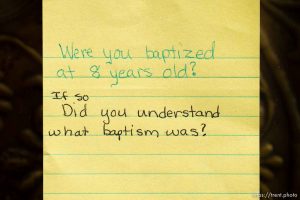 Were you baptized
at 8 years old?
If so
Did you understand
what baptism was?